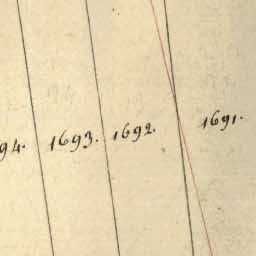 94. 1693. 1692. 1691.